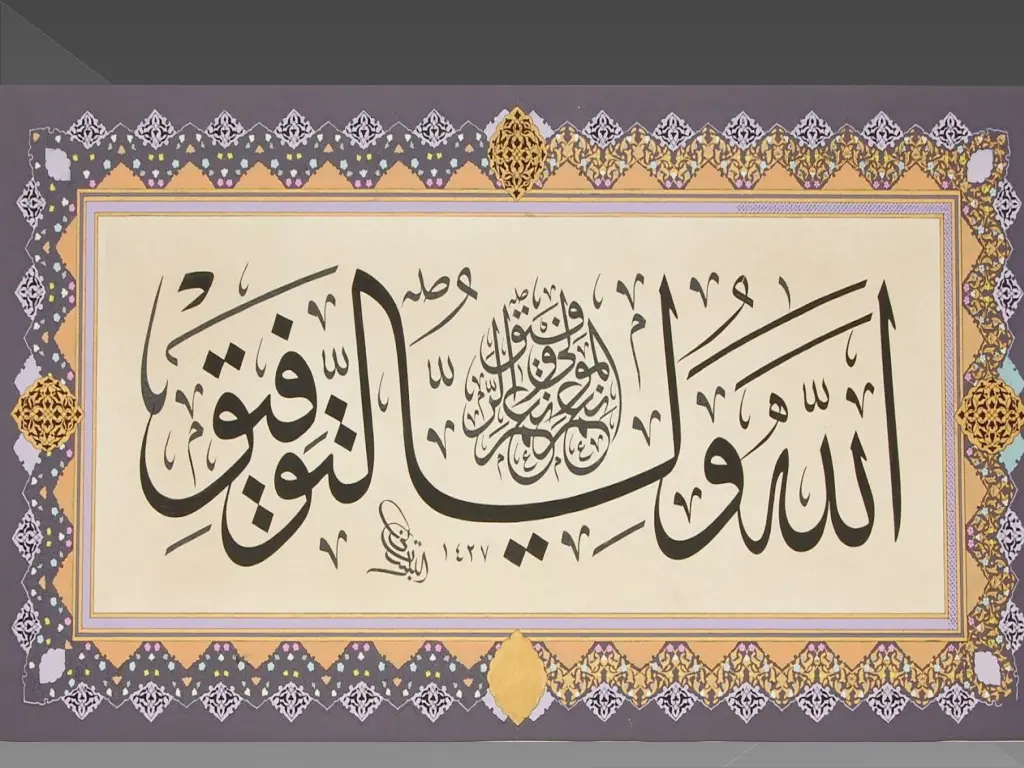 الله ولي التوفيق
نعم المولى ونعم الرفيق
١٤٢٧